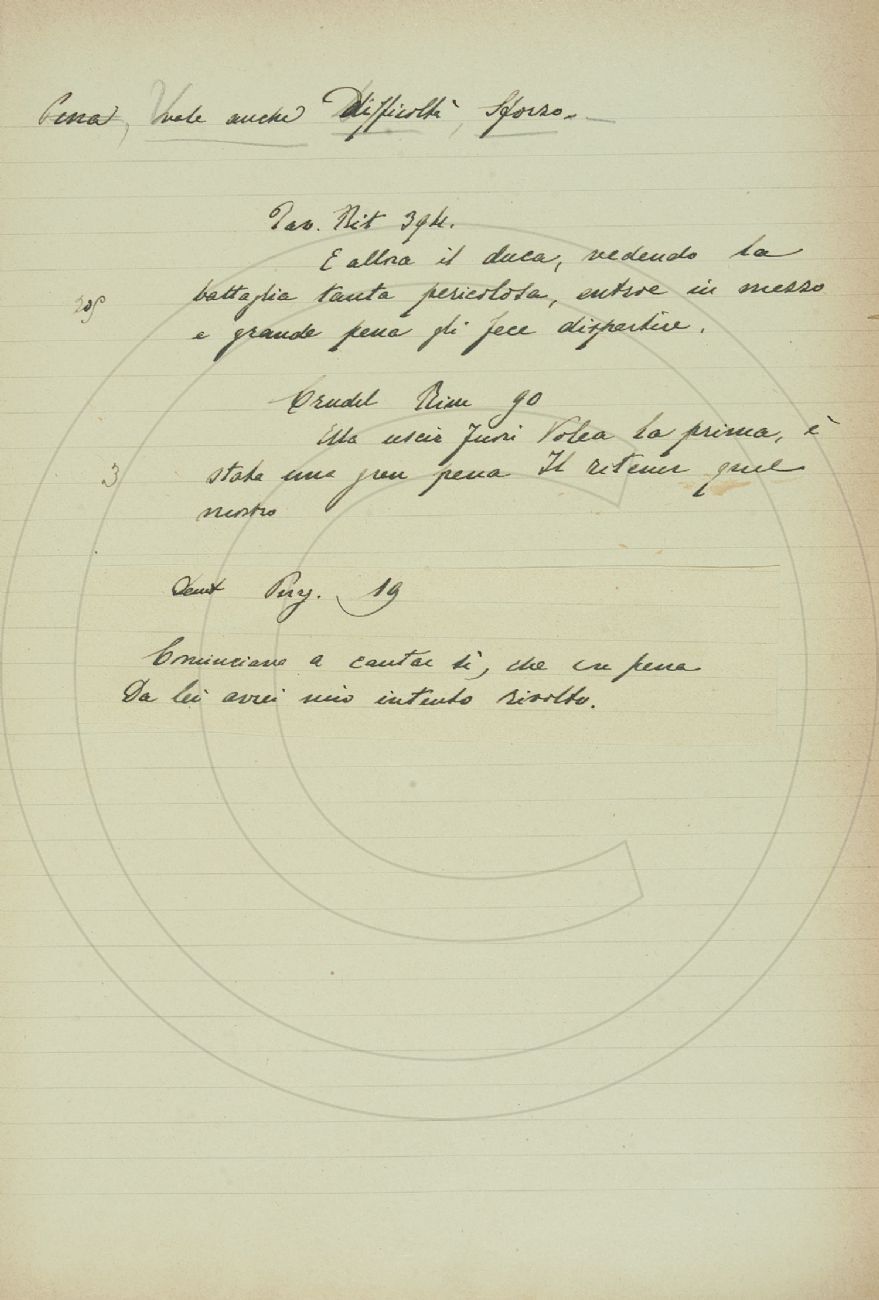 Pena, Vale anche Difficoltà, Sforzo.
Tav. Rit 394.
E allora il duca, vedendo la
battaglia tanta pericolosa, entroe in mezzo
e grande pena gli fece dispartire.
Crudel Rim 90
Ella uscir fuori Volea la prima, è
3 stata una gran pena Il ritener quel
mostro
Dant Purg. 19
Cominciava a cantar sì, che con pena
Da lei avrei mio intento rivolto.